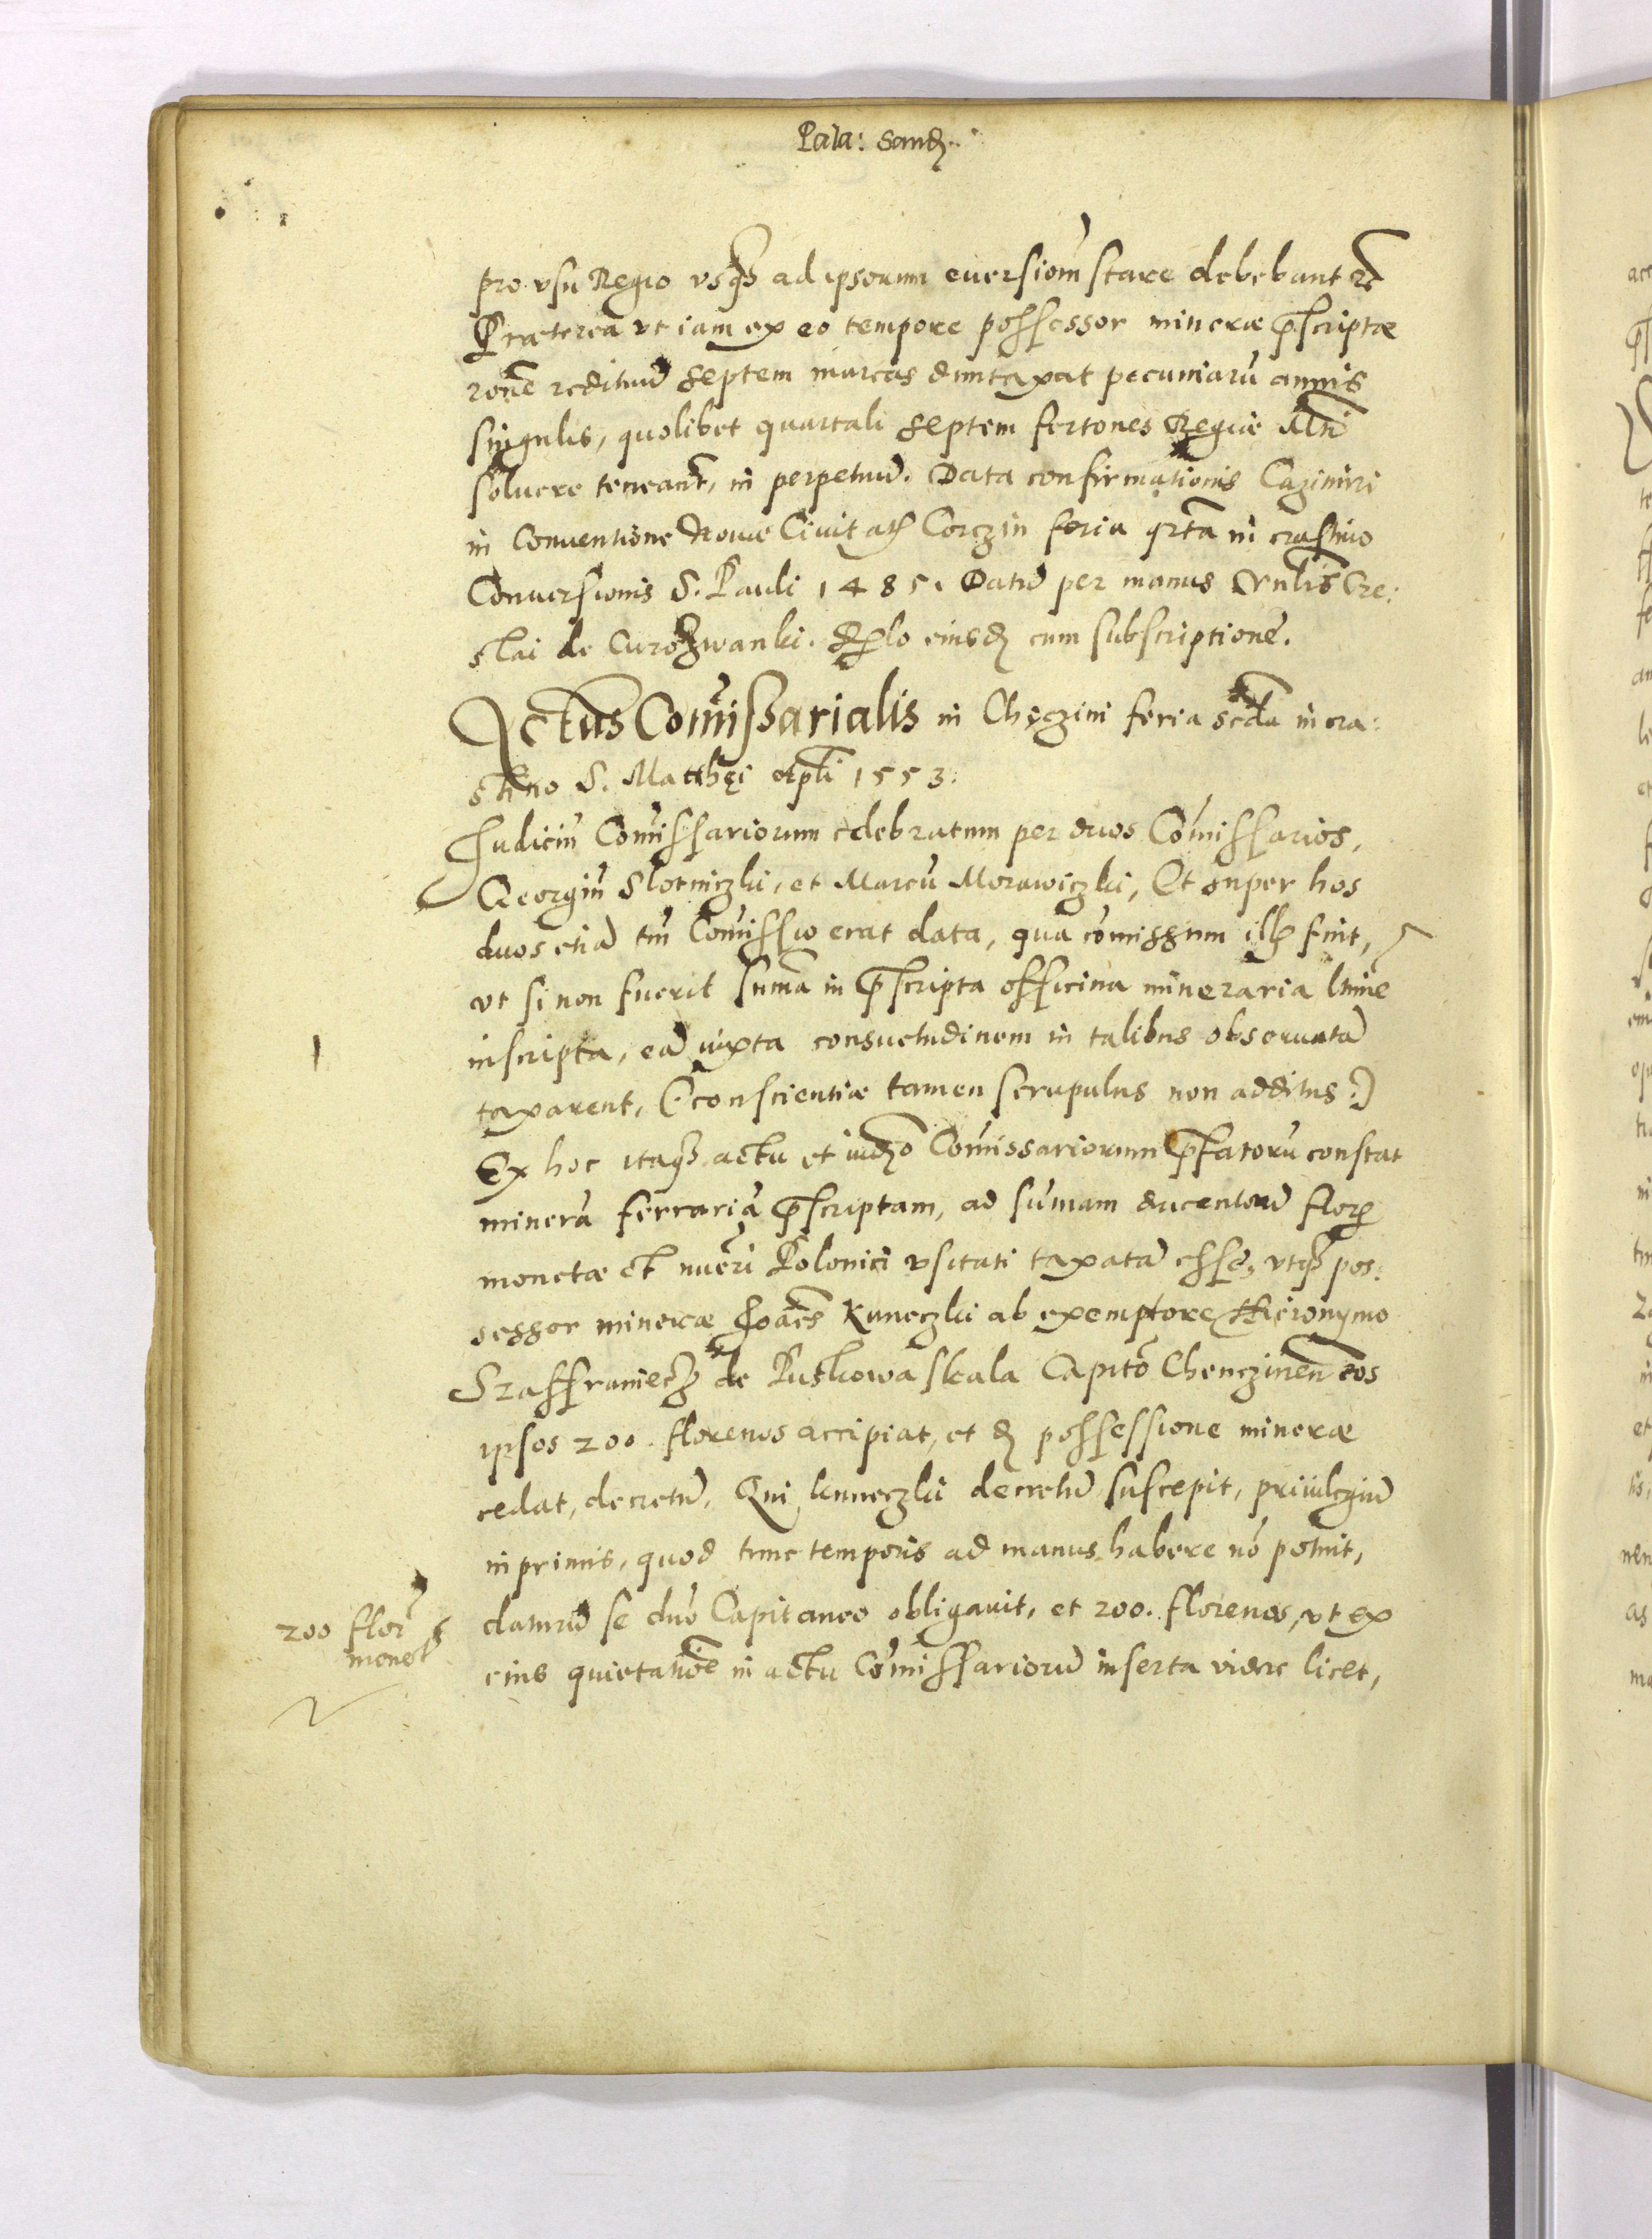 Pala: Sand.
pro vsu Regio vsq3 ad ipsorum euersionẽ stare debebant etc
Præterea vt iam ex eo tempore possessor mineræ p̄scriptæ
rõne redituũ septem marcas duntaxat pecuniarũ annis
singulis, quolibet quartali septem fertones Regiæ Mti
soluere teneant, in perpetuũ. Data confirmationis Cazimiri
in Conuentione Nouæ Ciuitatis Corczin feria qrta in crastino
Conuersionis S. Pauli 1485. Datũ per manus Cre:
slai de Curozwanki. eiusd cum subscriptione.
Actus Comissarialis in Chęczini feria scda in cra:
stino S. Matthęi Apli 1553.
Judiciũ Comissariorum celebratum per duos Comissarios,
Georgiũ Slotniczki, et Marcũ Morawiczki, Et super hos
duos etiã tm Comissio erat data, qua comissum illis fuit,
vt si non fuerit suma in p̄scripta officina mineraria
inscripta, eã iuxta consuetudinem in talibus obseruatã
taxarent, (: conscientiæ tamen scrupulus non additus :)
Ex hoc itaq3 actu et iudicio Comissariorum p̄fatorũ constat
minerã ferrariã p̄scriptam, ad sumam ducentorũ flor
monetæ et nueri Polonici vsitati taxatã esse, vtq3 pos:
sessor mineræ Joães Kuneczki ab exemptore Hieronymo
Szaffraniecz de Pieskowa skala Capito Chenczinen eos
ipsos 200. florenos accipiat, et d possessione mineræ
cedat, decretũ. Qui Kuneczki decretũ suscepit, priuilegiũ
inprimis, quod tunc temporis ad manus habere nõ potuit,
daturũ se dno Capitaneo obligauit, et 200. florenos, vt ex
eius quietatione in actu Comissariorũ inserta videre licet,
200 flor
monet